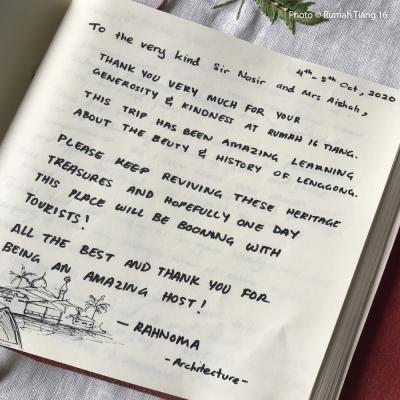 Photo © Rumah Tiang 16
4th - 5th Oct, 2020
To the very kind Sir Nasir and Mrs Aishah,
THANK YOU VERY MUCH FOR YOUR
GENEROSITY & KINDNESS AT RUMAH 16 TIANG.
THIS TRIP HAS BEEN AMAZING LEARNING
ABOUT THE BEUTY & HISTORY OF LENGGONG.
PLEASE KEEP REVIVING THESE HERITAGE
TREASURES AND HOPEFULLY ONE DAY
THIS PLACE WILL BE BOOMING WITH
TOURISTS!
ALL THE BEST AND THANK YOU FOR
BEING AN AMAZING HOST!
- RAHNOMA
- Architecture -